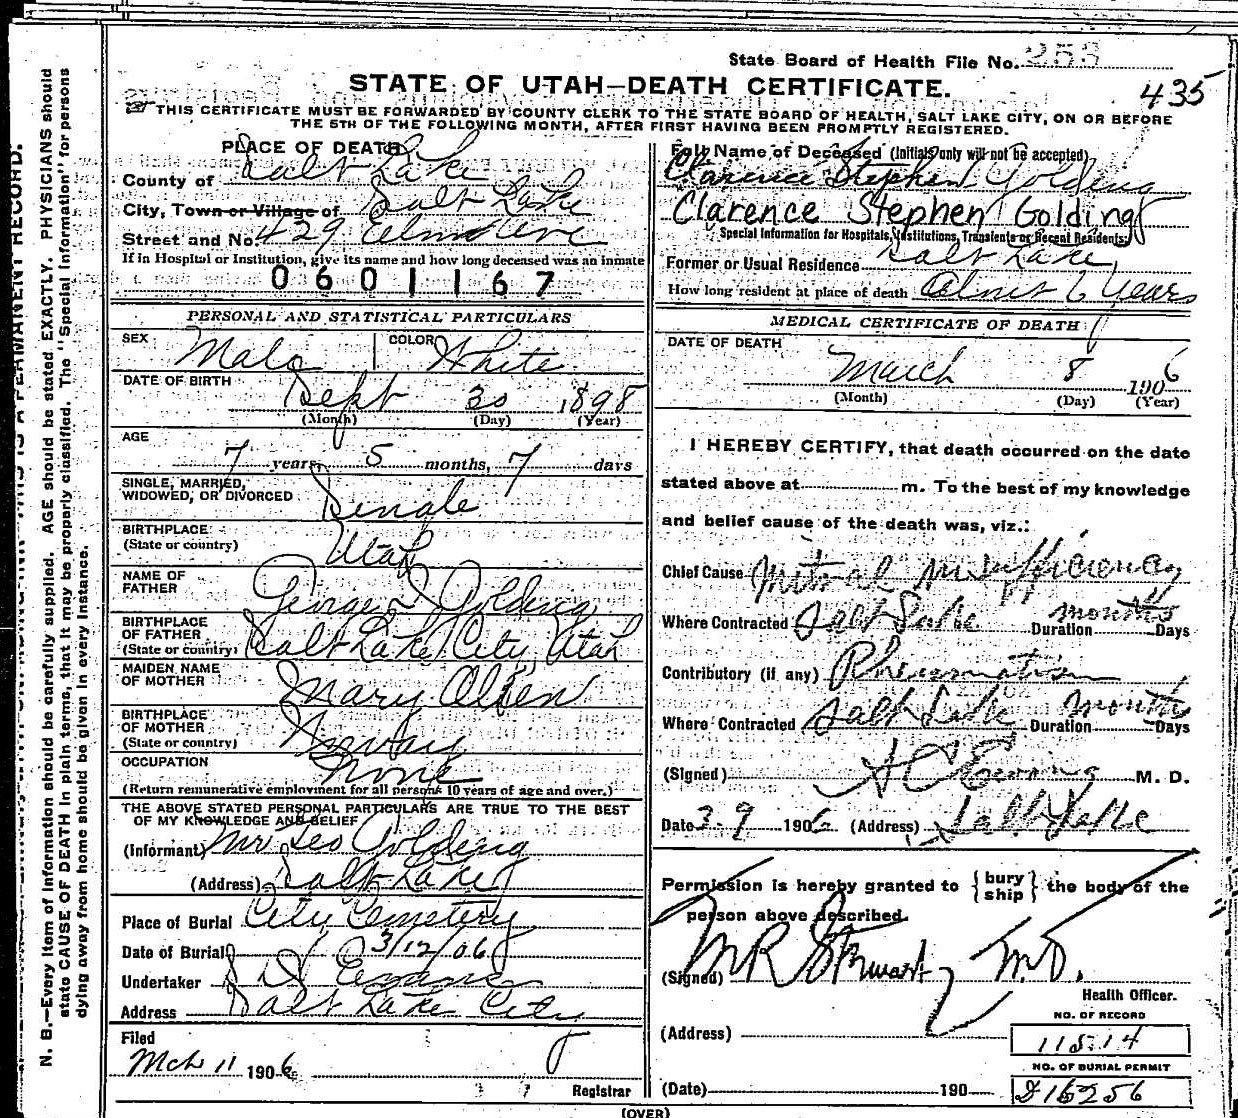 State Board of Health File No. 253
STATE OF UTAH—DEATH CERTIFICATE.
435
THIS CERTIFICATE MUST BE FORWARDED BY COUNTY CLERK TO THE STATE BOARD OF HEALTH, SALT LAKE CITY, ON OR BEFORE
THE 5TH OF THE FOLLOWING MONTH, AFTER FIRST HAVING BEEN PROMPTLY REGISTERED.
N. B.—Every item of information should be carefully supplied. AGE should be stated EXACTLY. PHYSICIANS should
state CAUSE OF DEATH in plain terms, that it may be properly classified. The "Special Information" for persons
dying away from home should be given in every instance.
PLACE OF DEATH
County of Salt Lake
City, Town or Village of Salt Lake
Street and No. 429 Elm Ave
If in Hospital or Institution, give its name and how long deceased was an inmate
0601167
PERSONAL AND STATISTICAL PARTICULARS
SEX Male COLOR White
DATE OF BIRTH
Sept 30 1898
(Month) (Day) (Year)
AGE
7 years, 5 months, 7 days
SINGLE, MARRIED,
WIDOWED, OR DIVORCED Single
BIRTHPLACE
(State or country) Utah
NAME OF
FATHER George S Golding
BIRTHPLACE
OF FATHER
(State or country) Salt Lake City Utah
MAIDEN NAME
OF MOTHER Mary Olsen
BIRTHPLACE
OF MOTHER
(State or country) Norway
OCCUPATION None
(Return remunerative employment for all persons 10 years of age and over.)
THE ABOVE STATED PERSONAL PARTICULARS ARE TRUE TO THE BEST
OF MY KNOWLEDGE AND BELIEF
(Informant) Mr Geo Golding
(Address) Salt Lake
Place of Burial City Cemetery
Date of Burial 3/12/06
Undertaker S D Evans
Address Salt Lake City
Filed
Mch 11 1906
Registrar
Full Name of Deceased (Initials only will not be accepted)
Clarence Stephen Golding
Clarence Stephen Golding
Special Information for Hospitals, Institutions, Transients or Recent Residents:
Former or Usual Residence Salt Lake,
How long resident at place of death 6 years
MEDICAL CERTIFICATE OF DEATH
DATE OF DEATH
March 8 1906
(Month) (Day) (Year)
I HEREBY CERTIFY, that death occurred on the date
stated above at m. To the best of my knowledge
and belief cause of the death was, viz.:
Chief Cause Mitral insufficiency
Where Contracted Salt Lake Duration months Days
Contributory (if any) Rheumatism
Where Contracted Salt Lake Duration months Days
(Signed) A C Ewing M. D.
Date 3-9 1906 (Address) Salt Lake
Permission is hereby granted to { bury ship } the body of the
person above described.
(Signed) M R Stewart M.D.
Health Officer.
(Address)
NO. OF RECORD
11514
NO. OF BURIAL PERMIT
(Date) 190
D16256
(OVER)